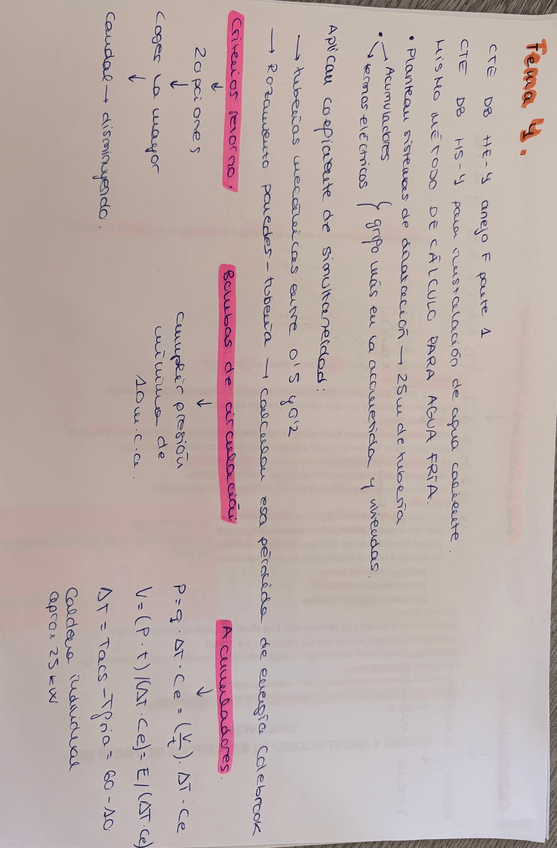 Tema 4.
CTE DB HE-4 anejo F parte 1
CTE DB HS-4 para instalación de agua caliente.
MISMO MÉTODO DE CÁLCULO PARA AGUA FRÍA.
• Plantean sistemas de dilatación → 25m de tubería
• Acumuladores
termos eléctricos } grifo más en la acometida y viviendas.
Aplican coeficiente de simultaneidad:
→ tuberías mecánicas entre 0'5 y 0'2
→ Rozamiento paredes-tubería → calculan esa pérdida de energía Colebrook
Criterios retorno.
↓
2 opciones
↓
Coger la mayor
↓
Caudal → disminuyendo.
Bombas de circulación.
↓
cumplir presión
mínima de
10 m.c.a.
Acumuladores.
↓
P = q · ΔT · Ce = (V/t) · ΔT · Ce
V = (P · t) / (ΔT · Ce) = E / (ΔT · Ce)
ΔT = Tacs - Tfria = 60 - 10
Caldera individual
aprox 25 kW